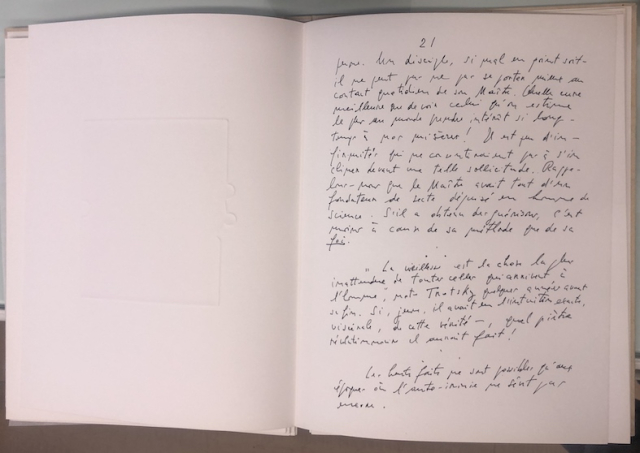 21
jeune. Un disciple, si mal en point soit-
il ne peut pas ne pas se porter mieux au
contact quotidien de son Maître. Quelle cure
meilleure que de voir celui qu'on estime
le plus au monde prendre intérêt si long-
temps à nos misères ! Il est peu d'in-
firmités qui ne consentiraient pas à s'in-
cliner devant une telle sollicitude. Rappe-
lons-nous que le Maître avant tout d'un
fondateur de secte déguisé en homme de
science. S'il a obtenu des guérisons, c'est
moins à cause de sa méthode que de sa
foi.
" La vieillesse est la chose la plus
inattendue de toutes celles qui arrivent à
l'homme, note Trotsky quelques années avant
sa fin. Si, jeune, il avait eu l'intuition exacte,
viscérale, de cette vérité –, quel piètre
révolutionnaire il aurait fait !
Les hauts faits ne sont possibles qu'aux
époques où l'auto-ironie ne sévit pas
encore.